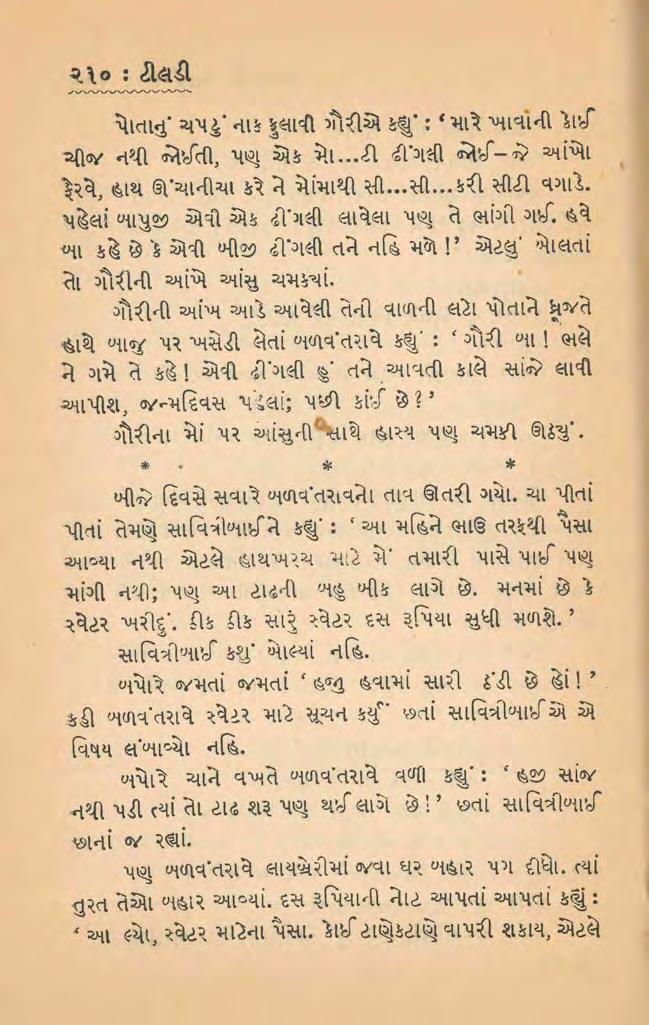 ૨૧૦ : ટીલડી
પોતાનું ચપટું નાક ફુલાવી ગૌરીએ કહ્યું : ‘ મારે ખાવાની કોઈ
ચીજ નથી જોઈતી, પણ એક મો...ટી ઢીંગલી જોઈ–જે આંખો
ફેરવે, હાથ ઊંચાનીચા કરે ને મોંમાથી સી...સી...કરી સીટી વગાડે.
પહેલાં બાપુજી એવી એક ઢીંગલી લાવેલા પણ તે ભાંગી ગઈ. હવે
બા કહે છે કે એવી બીજી ઢીંગલી તને નહિ મળે !’ એટલું બોલતાં
તો ગૌરીની આંખે આંસુ ચમક્યાં.
ગૌરીની આંખ આડે આવેલી તેની વાળની લટો પોતાને ધ્રૂજતે
હાથે બાજુ પર ખસેડી લેતાં બળવંતરાવે કહ્યું : ‘ ગૌરી બા ! ભલે
ને ગમે તે કહે ! એવી ઢીંગલી હું તને આવતી કાલે સાંજે લાવી
આપીશ, જન્મદિવસ પહેલાં; પછી કાંઈ છે ? ’
ગૌરીના મોં પર આંસુની સાથે હાસ્ય પણ ચમકી ઊઠ્યું.
* * *
બીજે દિવસે સવારે બળવંતરાવનો તાવ ઊતરી ગયો. ચા પીતાં
પીતાં તેમણે સાવિત્રીબાઈને કહ્યું : ‘ આ મહિને ભાઉ તરફથી પૈસા
આવ્યા નથી એટલે હાથખરચ માટે મેં તમારી પાસે પાઈ પણ
માંગી નથી; પણ આ ટાઢની બહુ બીક લાગે છે. મનમાં છે કે
સ્વેટર ખરીદું. ઠીક ઠીક સારું સ્વેટર દસ રૂપિયા સુધી મળશે. ’
સાવિત્રીબાઈ કશું બોલ્યાં નહિ.
બપોરે જમતાં જમતાં ‘ હજુ હવામાં સારી ઠંડી છે હોં ! ’
કહી બળવંતરાવે સ્વેટર માટે સૂચન કર્યું છતાં સાવિત્રીબાઈએ એ
વિષય લંબાવ્યો નહિ.
બપોરે ચાને વખતે બળવંતરાવે વળી કહ્યું : ‘ હજી સાંજ
નથી પડી ત્યાં તો ટાઢ શરૂ પણ થઈ લાગે છે !’ છતાં સાવિત્રીબાઈ
છાનાં જ રહ્યાં.
પણ બળવંતરાવે લાયબ્રેરીમાં જવા ઘર બહાર પગ દીધો. ત્યાં
તુરત તેઓ બહાર આવ્યાં. દસ રૂપિયાની નોટ આપતાં આપતાં કહ્યું :
‘ આ લ્યો, સ્વેટર માટેના પૈસા. કોઈ ટાણેકટાણે વાપરી શકાય, એટલે